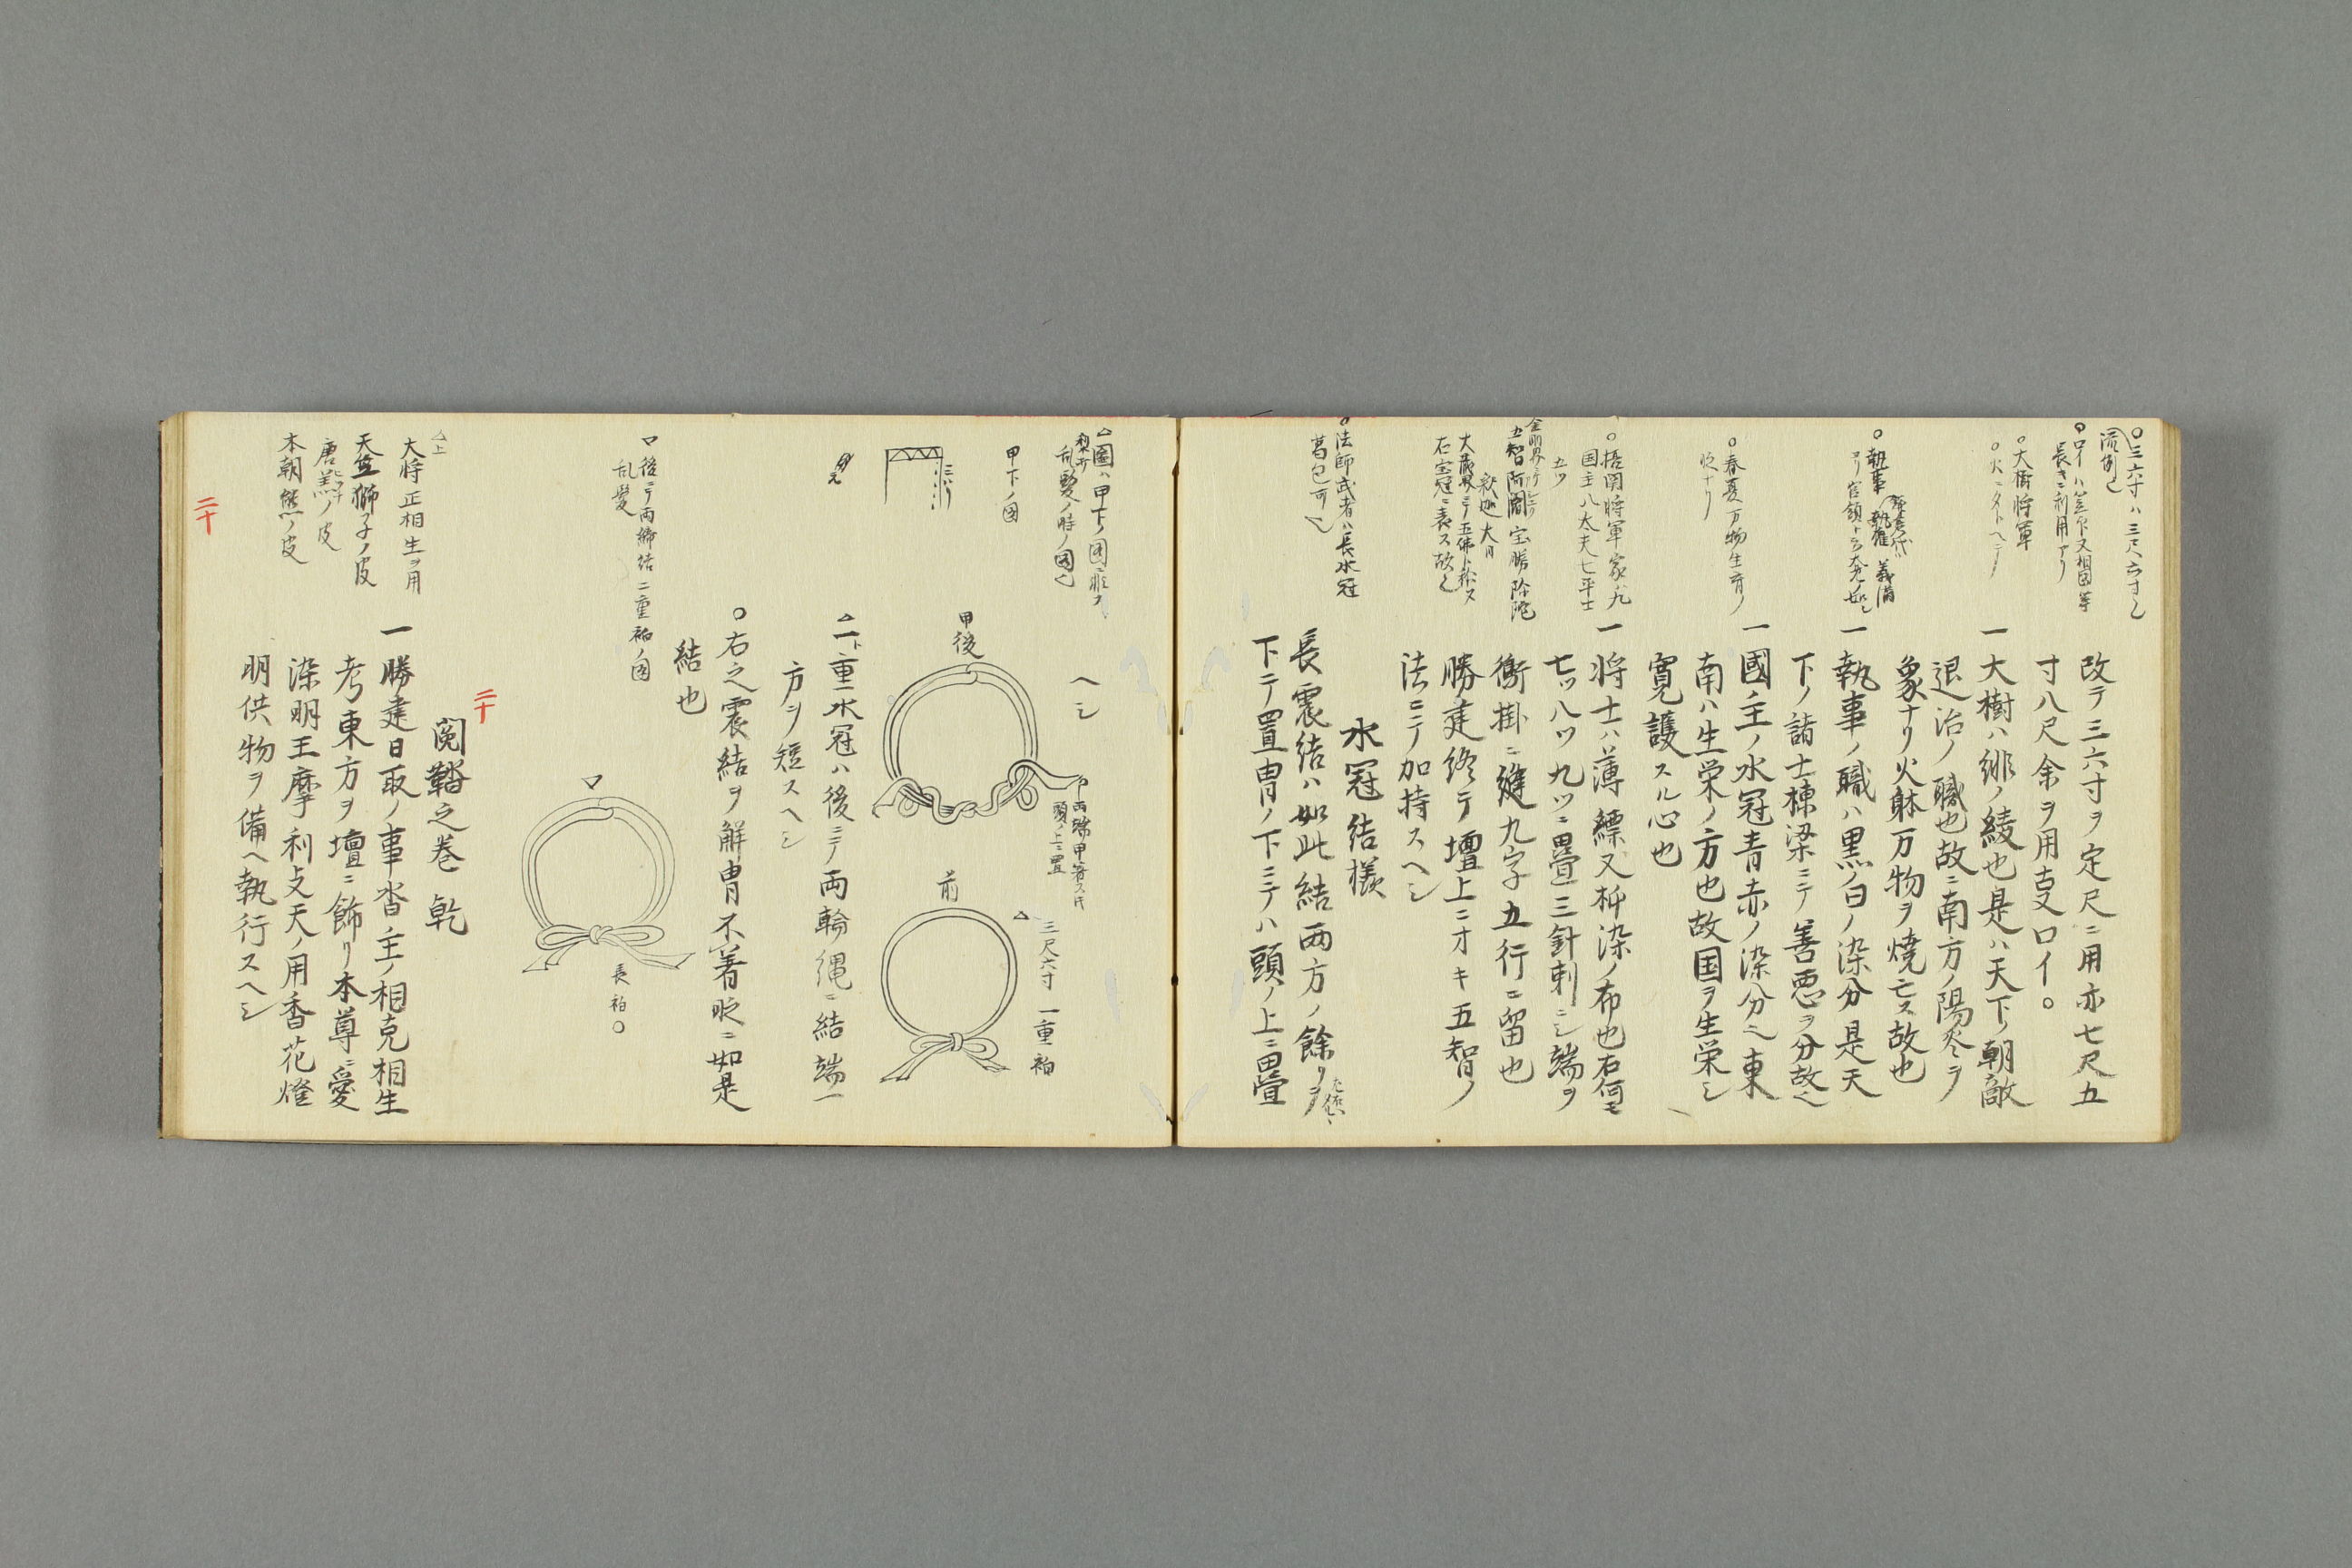 ○三六寸ハ三尺六寸也
流例也
長キニ利用アリ
○大樹将軍
○火ニタトヘテ
○執事
ヨリ官領ト云
義満
○春夏万物生育ノ
国主八大夫七平士
五ツ
五智阿閦宝勝
釈迦大日
右宝冠ニ表ス故也
○法師武者ハ長水冠
葛包可也
改テ三六寸ヲ定尺ニ用亦七尺五
寸八尺余ヲ用支ロイ。
一大樹ハ緋ノ綾也是ハ天下ノ朝敵
退治ノ職也故ニ南方ノ陽炎ヲ
象ナリ火躰万物ヲ焼亡ス故也
一執事ノ職ハ黒ノ白ノ染分是天
下ノ諸士棟梁ニテ善悪ヲ分故也
一國主ノ水冠青赤ノ染分也東
南ハ生栄ノ方也故国ヲ生栄シ
寛護スル心也
一将士ハ薄縹又柳染ノ布也右何モ
七ツ八ツ九ツニ畳三針刺ニシ端ヲ
衝掛ニ縫九字五行ニ留也
勝建終テ壇上ニオキ五智ノ
法ニテ加持スヘシ
水冠結様
長震結ハ如此結両方ノ餘リヲ
下ニテ置冑ノ下ニテハ頭ノ上ニ畳
△圖ハ甲下ノ図
乱髪ノ時ノ図也
甲下ノ図
ヘシ
甲後
前
△三尺六寸 一重袙
△一下重水冠ハ後ニテ両輪縄ニ結端一
方ヲ短スヘシ
○右之震結ヲ解冑不着眨ニ如是
結也
後ニテ両締結二重袙ノ図
乱髪
長袙○
二十
閲鞜之巻 乾
△上
大将正相生ヲ用
天竺獅子ノ皮
唐羆ノ皮
本朝熊ノ皮
一勝建日取ノ事沓主ノ相克相生
考東方ヲ壇ニ飾リ本尊ニ愛
染明王摩利支天ノ用香花燈
明供物ヲ備ヘ執行スヘシ
二十